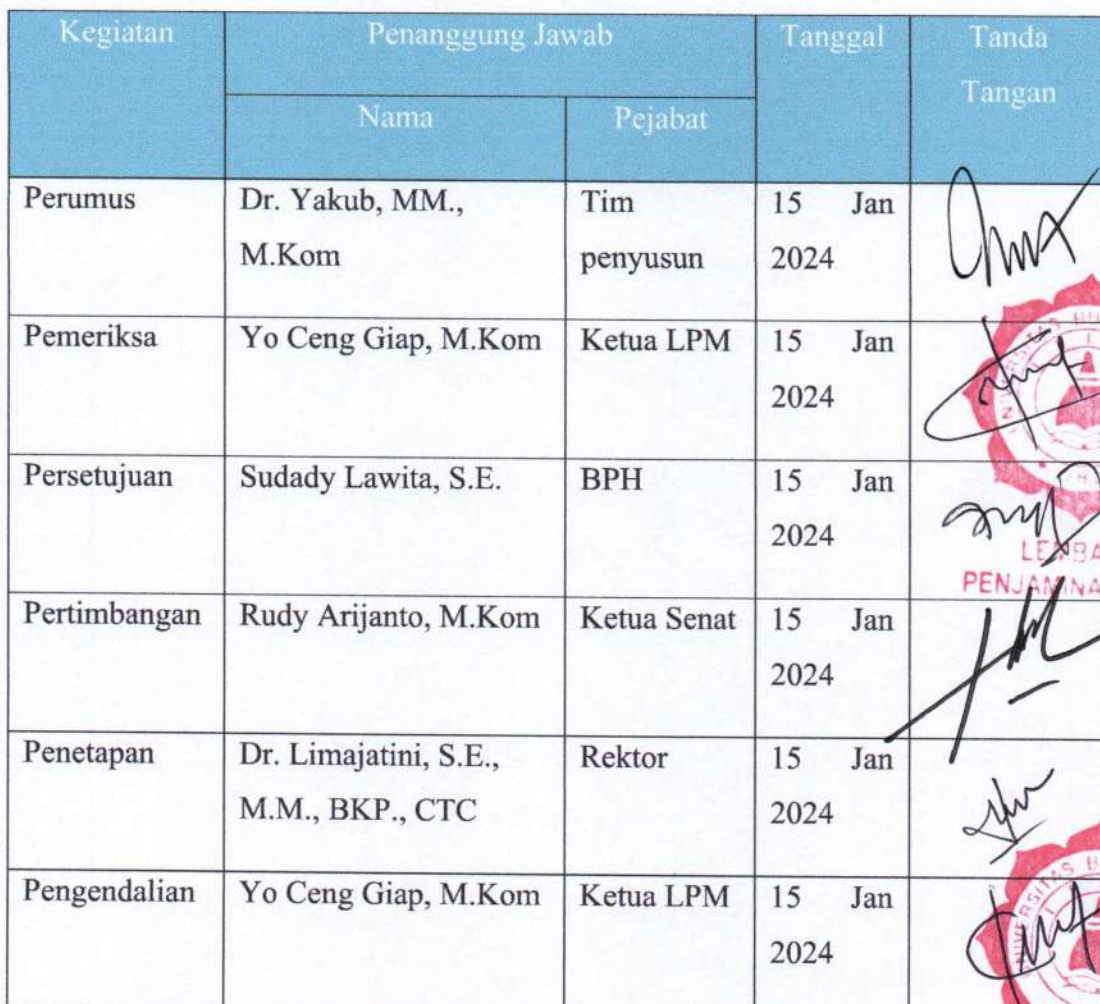 Kegiatan Penanggung Jawab Tanggal Tanda
Tangan
Nama Pejabat
Perumus Dr. Yakub, MM., Tim 15 Jan
M.Kom penyusun 2024
Pemeriksa Yo Ceng Giap, M.Kom Ketua LPM 15 Jan
2024
Persetujuan Sudady Lawita, S.E. BPH 15 Jan
2024
LEMBA
PENJAMINA
Pertimbangan Rudy Arijanto, M.Kom Ketua Senat 15 Jan
2024
Penetapan Dr. Limajatini, S.E., Rektor 15 Jan
M.M., BKP., CTC 2024
Pengendalian Yo Ceng Giap, M.Kom Ketua LPM 15 Jan
2024